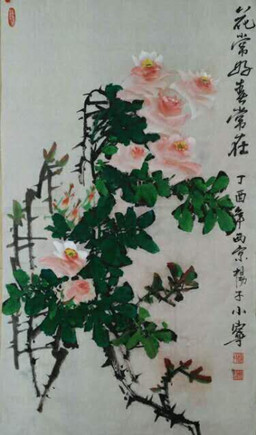 花常好春常在
丁酉年西京楊子小寧